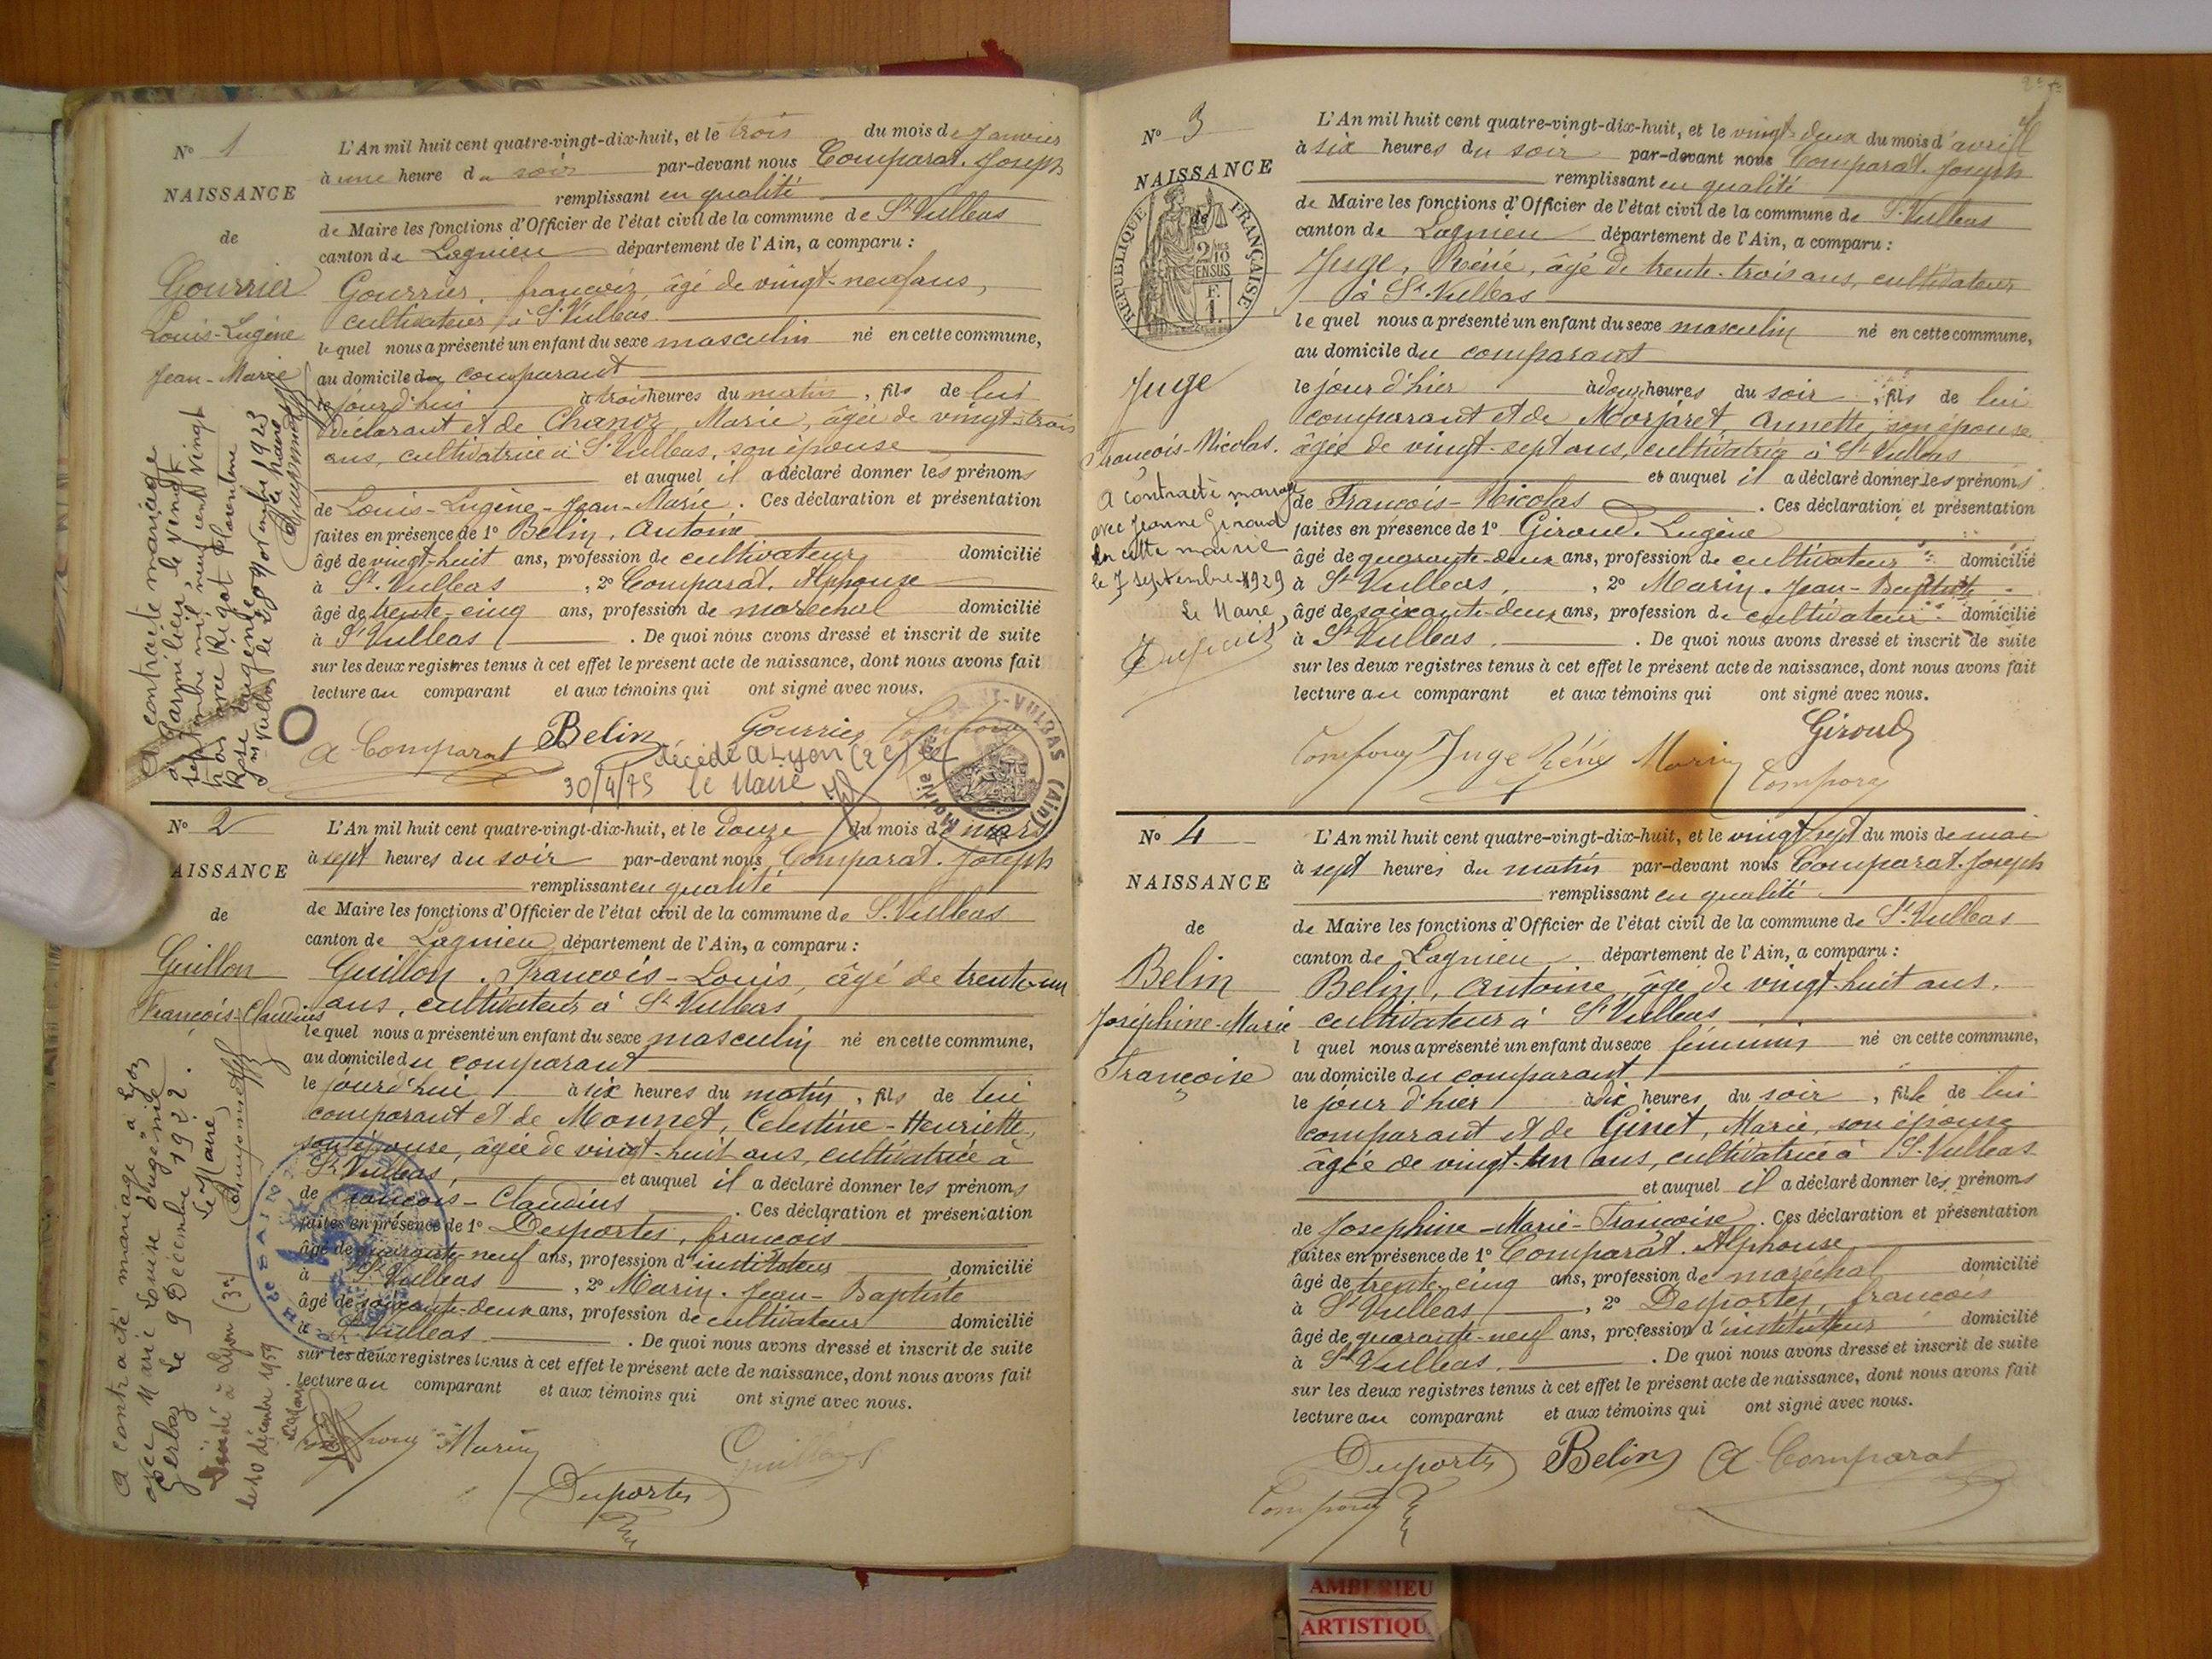 N° 1
NAISSANCE
de
Gourrier
Louis-Eugène
Jean-Marie
A contracté mariage
à Parmilieu le vingt
septembre mil neuf cent vingt
trois avec Rigot Florentine
Rose Eugénie
St Vulbas, le 29 novembre 1923
Le Maire
L'An mil huit cent quatre-vingt-dix-huit, et le trois du mois de Janvier
à une heure du soir par-devant nous Comparat, Joseph
remplissant en qualité
de Maire les fonctions d'Officier de l'état civil de la commune de St Vulbas
canton de Lagnieu département de l'Ain, a comparu :
Gourrier, françois, âgé de vingt-neuf ans,
cultivateur, à St Vulbas
lequel nous a présenté un enfant du sexe masculin né en cette commune,
au domicile du comparant
le jourd'hui à trois heures du matin, fils de lui
déclarant et de Chanoz, Marie, âgée de vingt-trois
ans, cultivatrice à St Vulbas, son épouse
et auquel il a déclaré donner les prénoms
de Louis-Eugène-Jean-Marie. Ces déclaration et présentation
faites en présence de 1° Belin, Antoine
âgé de vingt-huit ans, profession de cultivateur domicilié
à St Vulbas, 2° Comparat, Alphonse
âgé de trente-cinq ans, profession de maréchal domicilié
à St Vulbas. De quoi nous avons dressé et inscrit de suite
sur les deux registres tenus à cet effet le présent acte de naissance, dont nous avons fait
lecture au comparant et aux témoins qui ont signé avec nous.
A Comparat Belin Gourrier
décédé à Lyon (2e) le
30/4/75 le Maire
Mairie de ST-VULBAS (Ain)
N° 2
NAISSANCE
de
Guillon
François-Claudius
A contracté mariage à Lyon
avec Marie Louise Eugénie
Gerbaz le 9 Décembre 1922.
Le Maire,
Décédé à Lyon (3e)
le 10 décembre 1959
L'An mil huit cent quatre-vingt-dix-huit, et le douze du mois de mars
à sept heures du soir par-devant nous Comparat, Joseph
remplissant en qualité
de Maire les fonctions d'Officier de l'état civil de la commune de St Vulbas
canton de Lagnieu département de l'Ain, a comparu :
Guillon, François-Louis, âgé de trente-un
ans, cultivateur à St Vulbas
lequel nous a présenté un enfant du sexe masculin né en cette commune,
au domicile du comparant
le jourd'hui à six heures du matin, fils de lui
comparant et de Monnet, Celestine-Henriette,
son épouse, âgée de vingt-huit ans, cultivatrice à
St Vulbas, et auquel il a déclaré donner les prénoms
de François-Claudius. Ces déclaration et présentation
faites en présence de 1° Desportes, françois
âgé de quarante-neuf ans, profession d'instituteur domicilié
à St Vulbas, 2° Marin, Jean-Baptiste
âgé de soixante-deux ans, profession de cultivateur domicilié
à St Vulbas. De quoi nous avons dressé et inscrit de suite
sur les deux registres tenus à cet effet le présent acte de naissance, dont nous avons fait
lecture au comparant et aux témoins qui ont signé avec nous.
Marin
Guillon
Desportes
N° 3
NAISSANCE
de
RÉPUBLIQUE FRANÇAISE
Juge
François-Nicolas.
A contracté mariage
avec Jeanne Giroud
en cette mairie
le 7 septembre 1929
Le Maire,
L'An mil huit cent quatre-vingt-dix-huit, et le vingt-deux du mois d'avril
à six heures du soir par-devant nous Comparat, Joseph
remplissant en qualité
de Maire les fonctions d'Officier de l'état civil de la commune de St Vulbas
canton de Lagnieu département de l'Ain, a comparu :
Juge, Réné, âgé de trente-trois ans, cultivateur
à St Vulbas
lequel nous a présenté un enfant du sexe masculin né en cette commune,
au domicile du comparant
le jour d'hier à douze heures du soir, fils de lui
comparant et de Morjaret, Annette, son épouse
âgée de vingt-sept ans, cultivatrice à St Vulbas
et auquel il a déclaré donner les prénoms
de François-Nicolas. Ces déclaration et présentation
faites en présence de 1° Giroud, Eugène
âgé de quarante-deux ans, profession de cultivateur domicilié
à St Vulbas, 2° Marin, Jean-Baptiste
âgé de soixante-deux ans, profession de cultivateur domicilié
à St Vulbas. De quoi nous avons dressé et inscrit de suite
sur les deux registres tenus à cet effet le présent acte de naissance, dont nous avons fait
lecture au comparant et aux témoins qui ont signé avec nous.
Giroud
Juge Réné Marin
N° 4
NAISSANCE
de
Belin
Joséphine-Marie
Françoise
L'An mil huit cent quatre-vingt-dix-huit, et le vingt-sept du mois de mai
à sept heures du matin par-devant nous Comparat, Joseph
remplissant en qualité
de Maire les fonctions d'Officier de l'état civil de la commune de St Vulbas
canton de Lagnieu département de l'Ain, a comparu :
Belin, Antoine, âgé de vingt-huit ans,
cultivateur à St Vulbas
l quel nous a présenté un enfant du sexe féminin né en cette commune,
au domicile du comparant
le jour d'hier à dix heures du soir, fille de lui
comparant et de Ginet, Marie, son épouse
âgée de vingt-un ans, cultivatrice à St Vulbas
et auquel il a déclaré donner les prénoms
de Josephine-Marie-Françoise. Ces déclaration et présentation
faites en présence de 1° Comparat, Alphonse
âgé de trente-cinq ans, profession de maréchal domicilié
à St Vulbas, 2° Desportes, françois
âgé de quarante-neuf ans, profession d'instituteur domicilié
à St Vulbas. De quoi nous avons dressé et inscrit de suite
sur les deux registres tenus à cet effet le présent acte de naissance, dont nous avons fait
lecture au comparant et aux témoins qui ont signé avec nous.
Desportes Belin A Comparat
AMBERIEU
ARTISTIQU